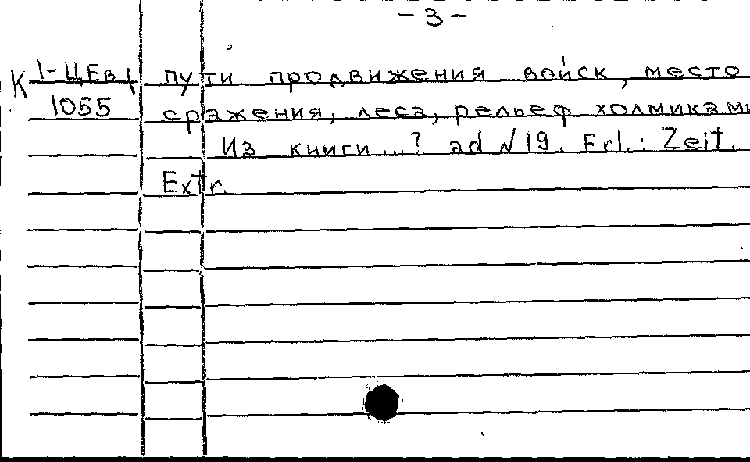 - 3 -
К 1-ЦЕв1 пути продвижения войск, место
1055 сражения, леса, рельеф холмиками
Из книги...? ad N 19. Erl.: Zeit.
Extr.